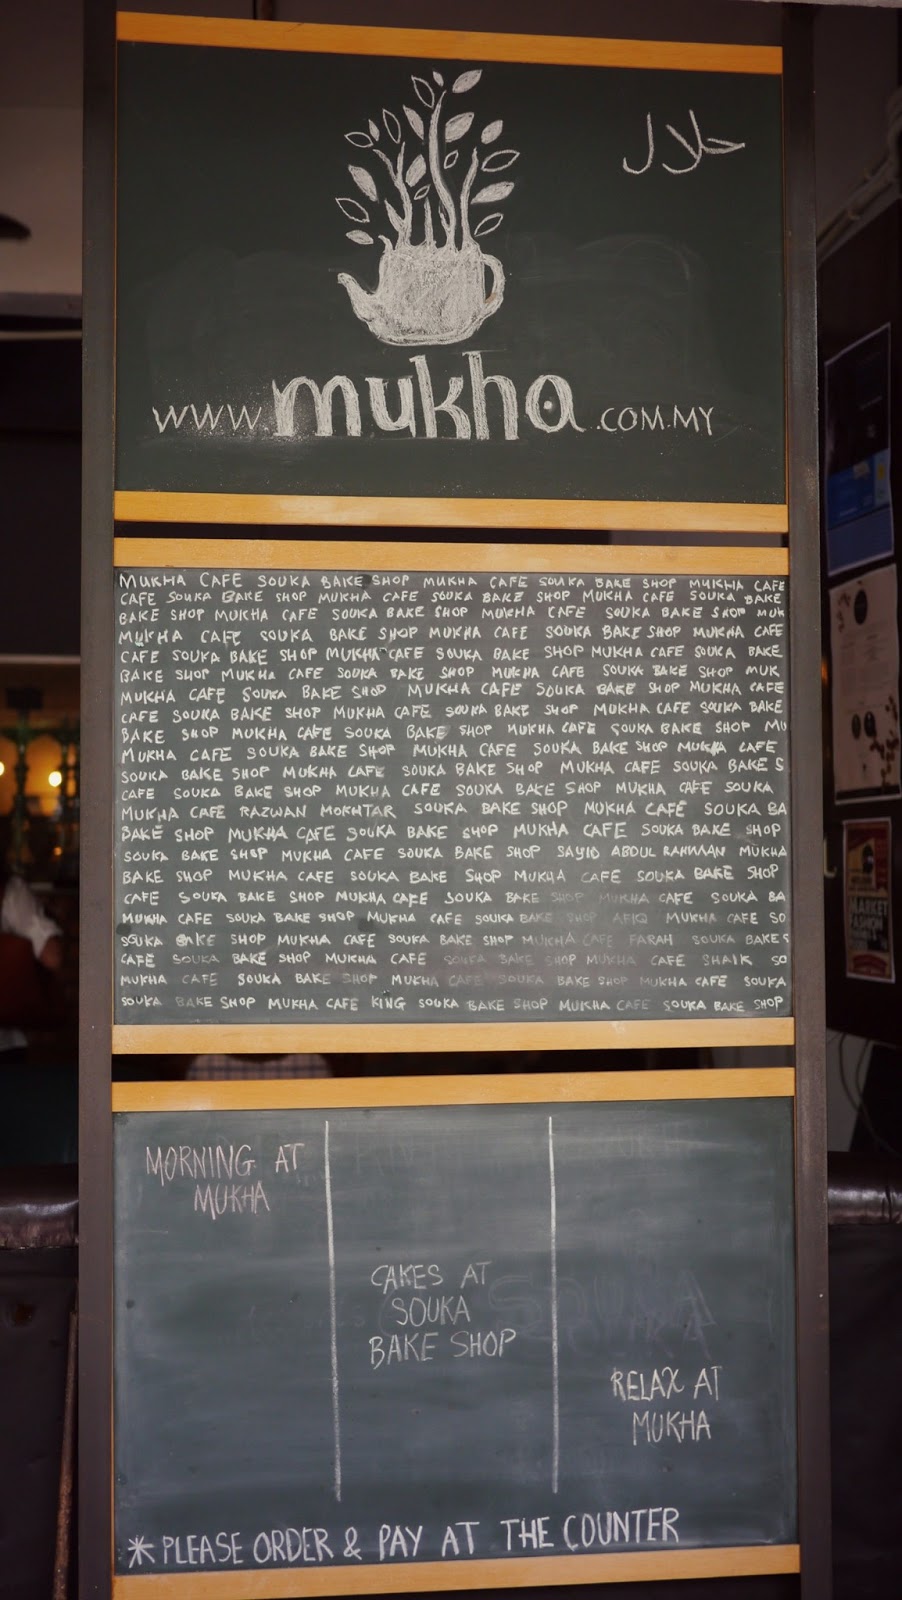 حلال
www.mukha.COM.MY
MUKHA CAFE SOUKA BAKE SHOP MUKHA CAFE SOUKA BAKE SHOP MUKHA CAFE
CAFE SOUKA BAKE SHOP MUKHA CAFE SOUKA BAKE SHOP MUKHA CAFE SOUKA BAKE
BAKE SHOP MUKHA CAFE SOUKA BAKE SHOP MUKHA CAFE SOUKA BAKE SHOP MUK
MUKHA CAFE SOUKA BAKE SHOP MUKHA CAFE SOUKA BAKE SHOP MUKHA CAFE
CAFE SOUKA BAKE SHOP MUKHA CAFE SOUKA BAKE SHOP MUKHA CAFE SOUKA BAKE
BAKE SHOP MUKHA CAFE SOUKA BAKE SHOP MUKHA CAFE SOUKA BAKE SHOP MUK
MUKHA CAFE SOUKA BAKE SHOP MUKHA CAFE SOUKA BAKE SHOP MUKHA CAFE
CAFE SOUKA BAKE SHOP MUKHA CAFE SOUKA BAKE SHOP MUKHA CAFE SOUKA BAKE
BAKE SHOP MUKHA CAFE SOUKA BAKE SHOP MUKHA CAFE SOUKA BAKE SHOP MU
MUKHA CAFE SOUKA BAKE SHOP MUKHA CAFE SOUKA BAKE SHOP MUKHA CAFE
SOUKA BAKE SHOP MUKHA CAFE SOUKA BAKE SHOP MUKHA CAFE SOUKA BAKE S
CAFE SOUKA BAKE SHOP MUKHA CAFE SOUKA BAKE SHOP MUKHA CAFE SOUKA
MUKHA CAFE RAZWAN MOKHTAR SOUKA BAKE SHOP MUKHA CAFE SOUKA BA
BAKE SHOP MUKHA CAFE SOUKA BAKE SHOP MUKHA CAFE SOUKA BAKE SHOP
SOUKA BAKE SHOP MUKHA CAFE SOUKA BAKE SHOP SAYID ABDUL RAHMAAN MUKHA
BAKE SHOP MUKHA CAFE SOUKA BAKE SHOP MUKHA CAFE SOUKA BAKE SHOP
CAFE SOUKA BAKE SHOP MUKHA CAFE SOUKA BAKE SHOP MUKHA CAFE SOUKA BA
MUKHA CAFE SOUKA BAKE SHOP MUKHA CAFE SOUKA BAKE SHOP AFIQ MUKHA CAFE SO
SOUKA BAKE SHOP MUKHA CAFE SOUKA BAKE SHOP MUKHA CAFE FARAH SOUKA BAKES
CAFE SOUKA BAKE SHOP MUKHA CAFE SOUKA BAKE SHOP MUKHA CAFE SHAIK SO
MUKHA CAFE SOUKA BAKE SHOP MUKHA CAFE SOUKA BAKE SHOP MUKHA CAFE SOUKA
SOUKA BAKE SHOP MUKHA CAFE KING SOUKA BAKE SHOP MUKHA CAFE SOUKA BAKE SHOP
MORNING AT
MUKHA
CAKES AT
SOUKA
BAKE SHOP
RELAX AT
MUKHA
*PLEASE ORDER & PAY AT THE COUNTER
MARKET
FASHION